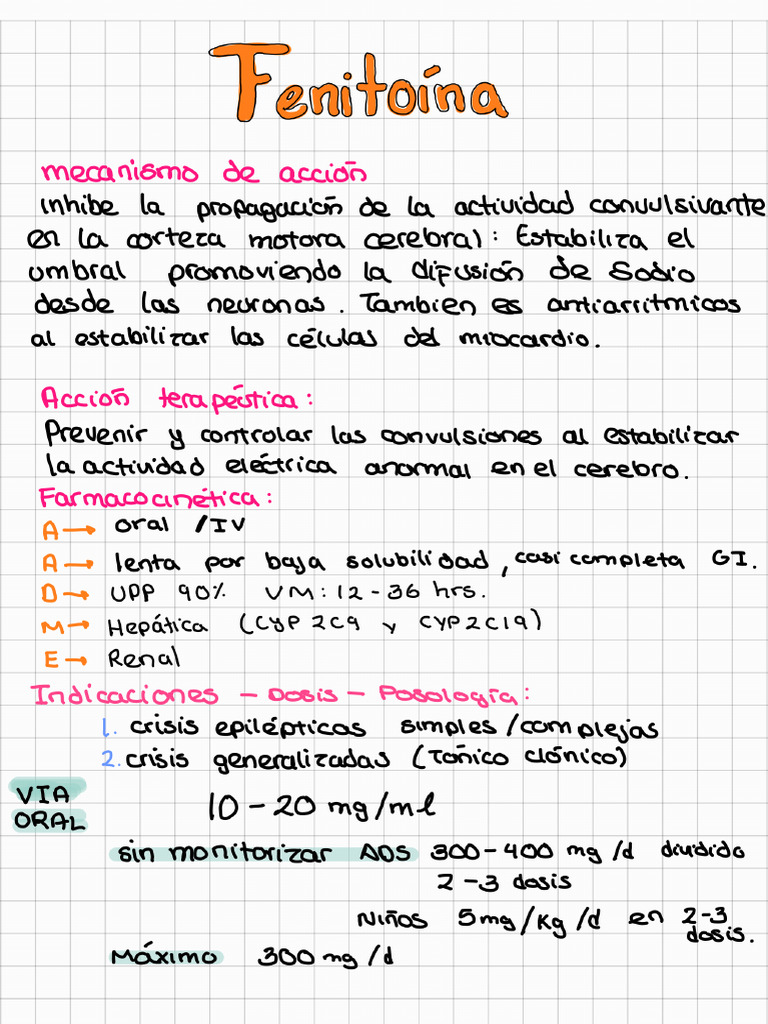 Fenitoína
mecanismo de acción
inhibe la propagación de la actividad convulsivante
en la corteza motora cerebral: Estabiliza el
umbral promoviendo la difusión de Sodio
desde las neuronas. Tambien es antiarritmicos
al estabilizar las células del miocardio.
Acción terapéutica:
Prevenir y controlar las convulsiones al estabilizar
la actividad eléctrica anormal en el cerebro.
Farmacocinética:
A → oral / IV
A → lenta por baja solubilidad, casi completa GI.
D → UPP 90% VM: 12-36 hrs.
M → Hepática (CYP 2C9 y CYP2C19)
E → Renal
Indicaciones - Dosis - Posología:
1. crisis epilépticas simples/complejas
2. crisis generalizadas (Tónico clónico)
VIA
ORAL
10-20 mg/ml
sin monitorizar ADS 300-400 mg/d dividido
2-3 dosis
Niños 5mg/Kg/d en 2-3
dosis.
Máximo 300 mg/d